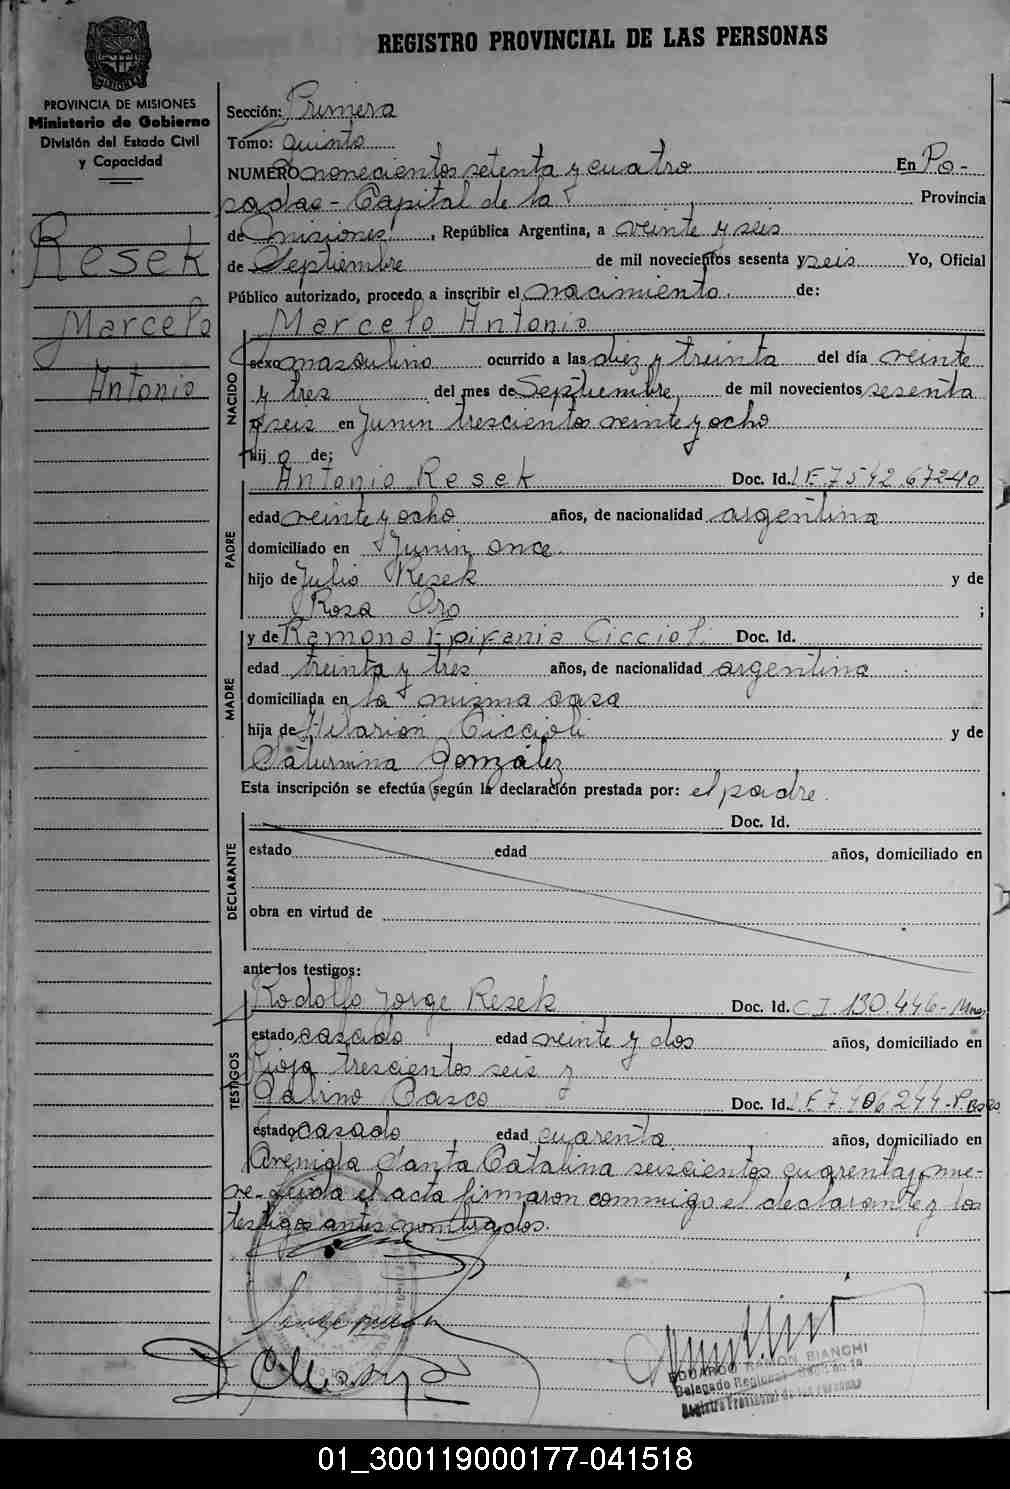 REGISTRO PROVINCIAL DE LAS PERSONAS
PROVINCIA DE MISIONES
Ministerio de Gobierno
División del Estado Civil
y Capacidad
Resek
Marcelo
Antonio
Sección: Primera
Tomo: Quinto
NUMERO novecientos setenta y cuatro En Po-
sadas - Capital de la Provincia
de Misiones, República Argentina, a veinte y seis
de Septiembre de mil novecientos sesenta y seis Yo, Oficial
Público autorizado, procedo a inscribir el nacimiento. de:
Marcelo Antonio
NACIDO
sexo masculino ocurrido a las diez y treinta del día veinte
y tres del mes de Septiembre, de mil novecientos sesenta
y seis en Junin trescientos veinte y ocho
hij o de;
PADRE
Antonio Resek Doc. Id. LE. 7 542.672-40
edad veinte y ocho años, de nacionalidad argentina
domiciliado en Junin once.
hijo de Julio Resek y de
Rosa Oro ;
MADRE
y de Ramona Epifania Ciccioli Doc. Id.
edad treinta y tres años, de nacionalidad argentina
domiciliada en la misma casa
hija de Hilarion Ciccioli y de
Saturnina González
Esta inscripción se efectúa según la declaración prestada por: el padre.
DECLARANTE
Doc. Id.
estado edad años, domiciliado en
obra en virtud de
ante los testigos:
TESTIGOS
Rodolfo Jorge Resek Doc. Id. C I. 130.446-
estado casado, edad veinte y dos años, domiciliado en
Rioja trescientos seis y
Galino Casco Doc. Id. LE. 7.406.244-
estado casado, edad cuarenta, años, domiciliado en
Avenida Santa Catalina seiscientos cuarenta y nue-
ve. Leida el acta firmaron conmigo el declarante y los
testigos antes nombrados.
EDUARDO RAMON BIANCHI
Delegado Regional
Registro Provincial de las Personas
01_300119000177-041518